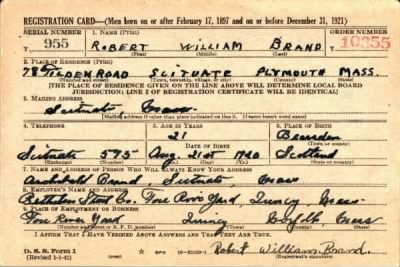 REGISTRATION CARD—(Men born on or after February 17, 1897 and on or before December 31, 1921)
SERIAL NUMBER 1. NAME (Print) ORDER NUMBER
955 ROBERT WILLIAM BRAND 10355
(First) (Middle) (Last)
2. PLACE OF RESIDENCE (Print)
78 TILDEN ROAD SCITUATE PLYMOUTH MASS.
(Number and street) (Town, township, village, or city) (County) (State)
[THE PLACE OF RESIDENCE GIVEN ON THE LINE ABOVE WILL DETERMINE LOCAL BOARD
JURISDICTION; LINE 2 OF REGISTRATION CERTIFICATE WILL BE IDENTICAL]
3. MAILING ADDRESS
Scituate Mass
[Mailing address if other than place indicated on line 2. If same insert word same]
4. TELEPHONE 5. AGE IN YEARS 6. PLACE OF BIRTH
21 Bearsden
DATE OF BIRTH (Town or county)
Scituate 575 Aug 21st Scotland
(Exchange) (Number) (Mo.) (Day) (Yr.) (State or country)
7. NAME AND ADDRESS OF PERSON WHO WILL ALWAYS KNOW YOUR ADDRESS
Archibald Brand Scituate Mass
8. EMPLOYER'S NAME AND ADDRESS
Bethlehem Steel Co. Fore River Yard, Quincy Mass
9. PLACE OF EMPLOYMENT OR BUSINESS
Fore River Yard Quincy Mass
(Number and street or R. F. D. number) (Town) (County) (State)
I AFFIRM THAT I HAVE VERIFIED ABOVE ANSWERS AND THAT THEY ARE TRUE.
D. S. S. Form 1 GPO Robert William Brand
(Revised 1-1-42) (Registrant's signature)